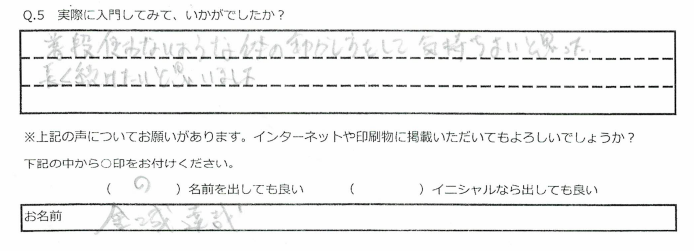 Q.5 実際に入門してみて、いかがでしたか？
普段使わないような体の動かし方をして気持ちよいと思った。
長く続けたいと思いました
※上記の声についてお願いがあります。インターネットや印刷物に掲載いただいてもよろしいでしょうか？
下記の中から○印をお付けください。
（ ○ ）名前を出しても良い （ ）イニシャルなら出しても良い
お名前 金城 達哉